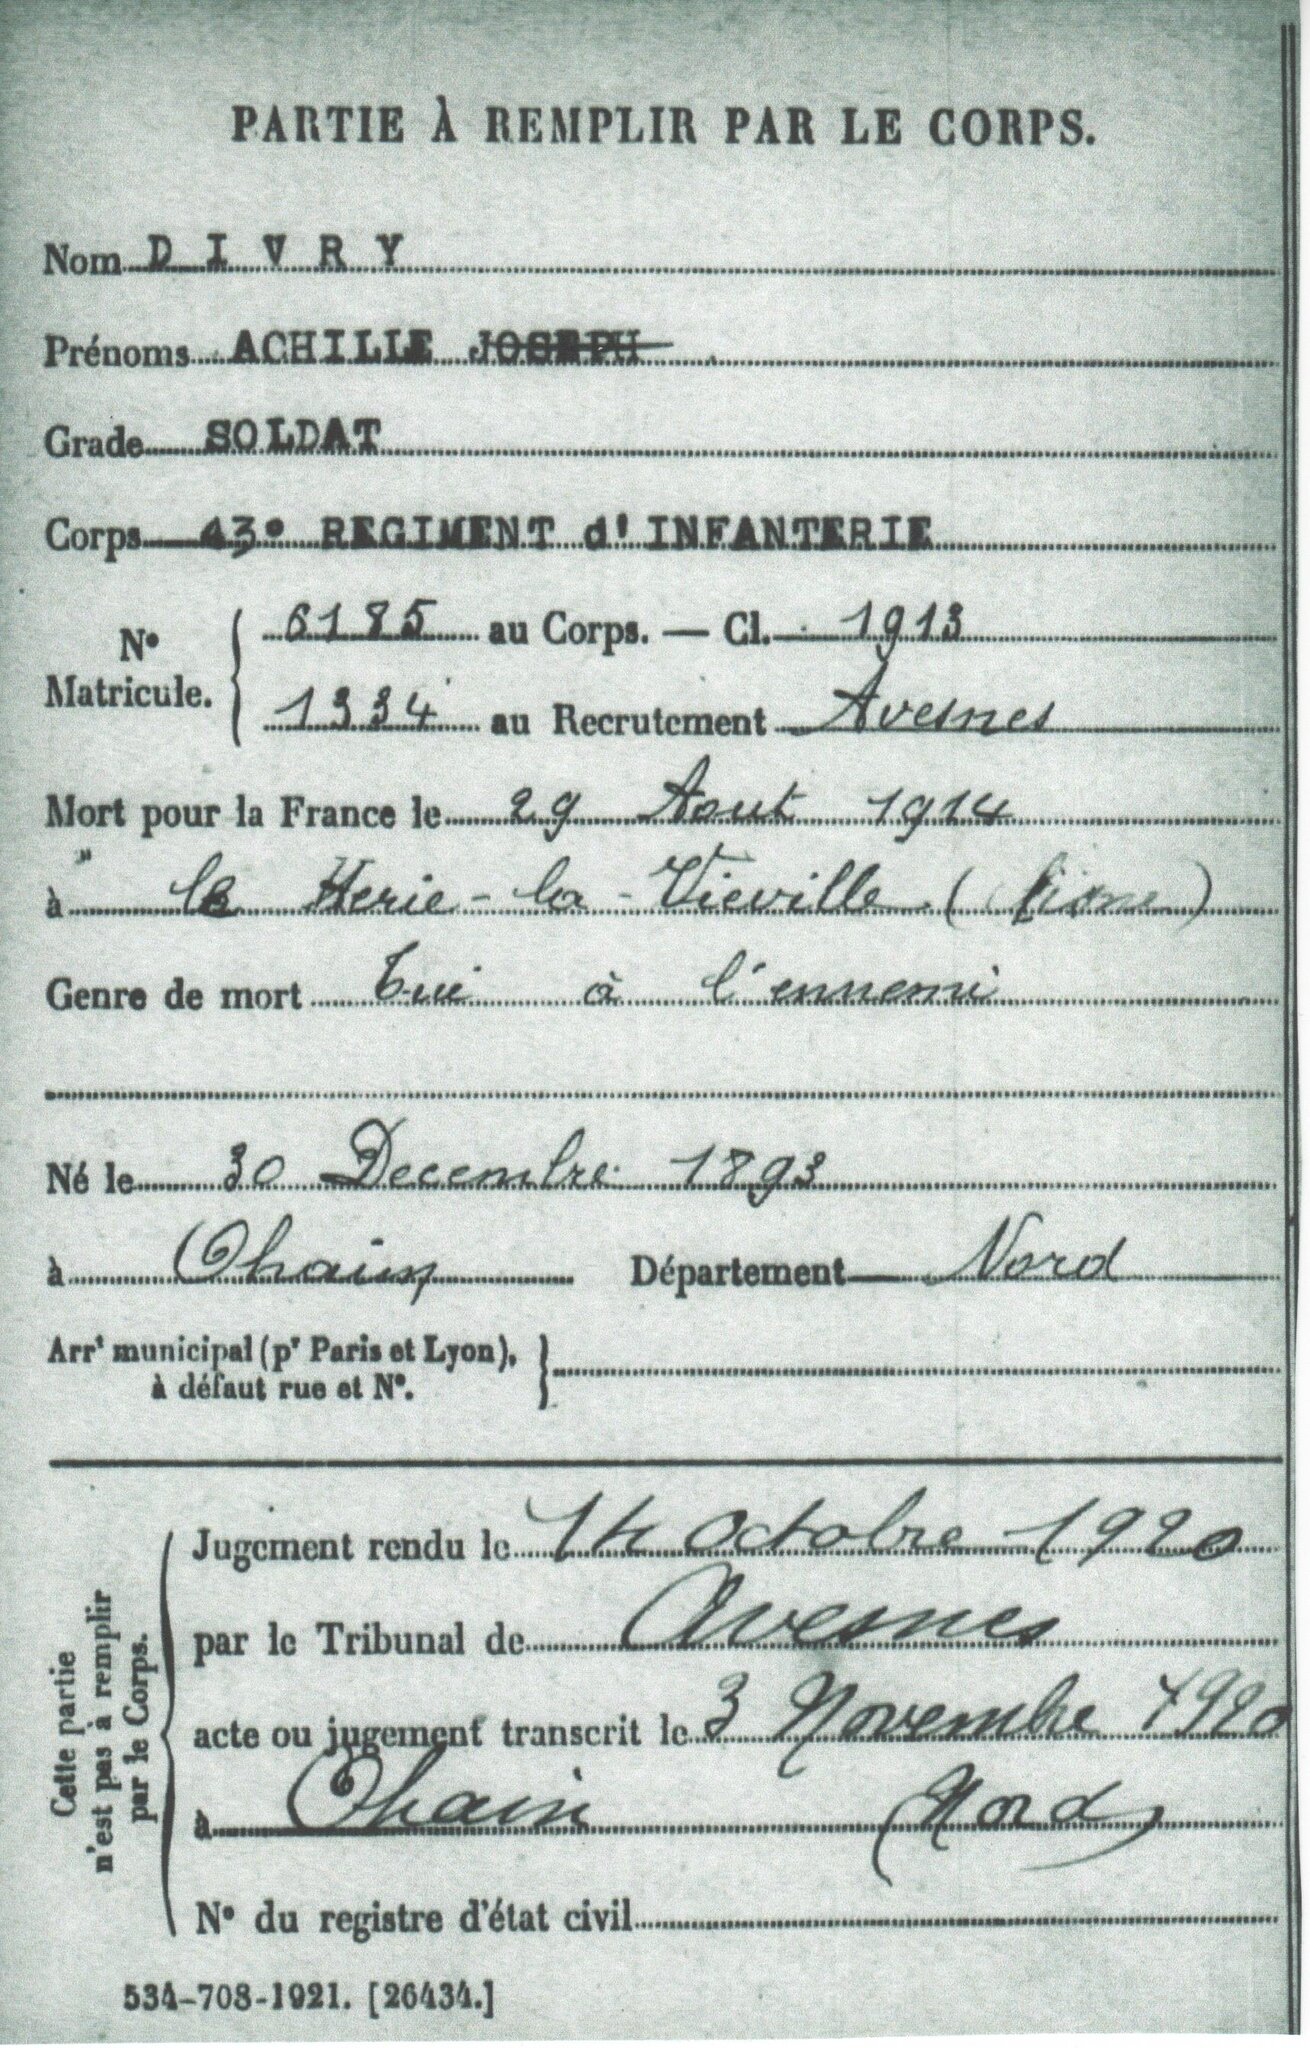 PARTIE À REMPLIR PAR LE CORPS.
Nom D I V R Y
Prénoms ACHILLE JOSEPH
Grade SOLDAT
Corps 43e REGIMENT d' INFANTERIE
No Matricule.
6185 au Corps. — Cl. 1913
1334 au Recrutement Avesnes
Mort pour la France le 29 Aout 1914
à le Herie-la-Vieville (Aisne)
Genre de mort Tué à l'ennemi
Né le 30 Decembre 1893
à Ohain Département Nord
Arrt municipal (pr Paris et Lyon),
à défaut rue et No.
Cette partie
n'est pas à remplir
par le Corps.
Jugement rendu le 14 Octobre 1920
par le Tribunal de Avesnes
acte ou jugement transcrit le 3 Novembre 1920
à Ohain (Nord)
No du registre d'état civil
534-708-1921. [26434.]